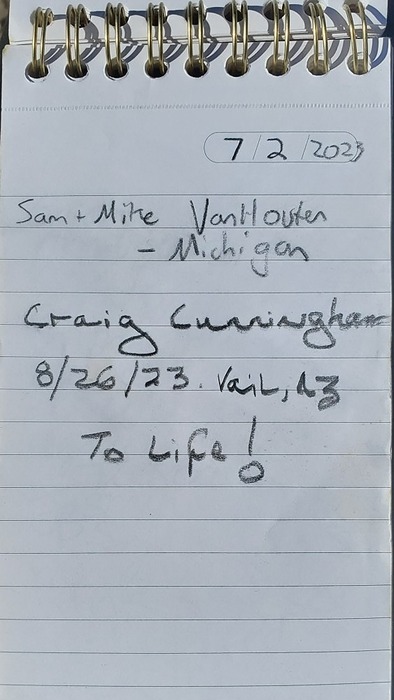 7/2/2023
Sam + Mike VanHouten
- Michigan
Craig Cunningham
8/26/23. Vail, AZ
To Life!